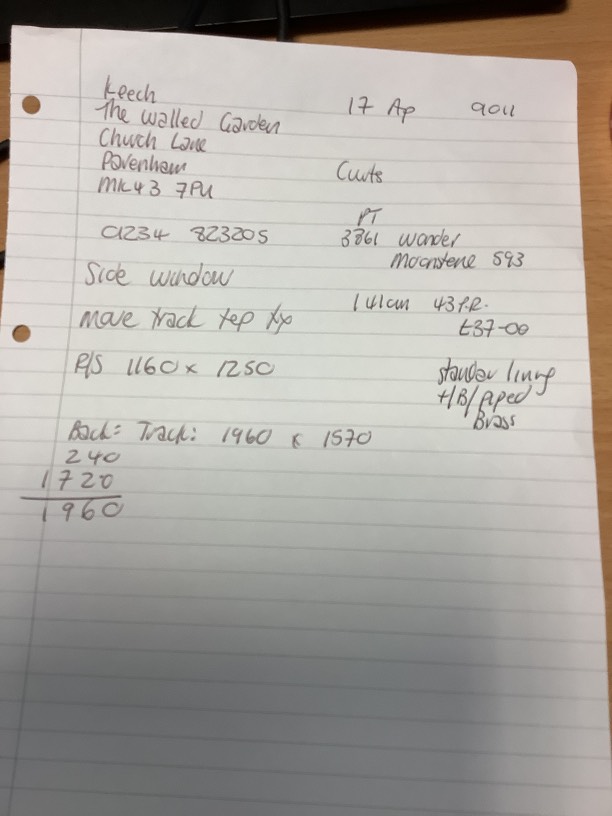 Keech
The Walled Garden
Church Lane
Pavenham
MK43 7PU
01234 823205
Side window
Move track
P/S 1160 x 1250
Back: Track: 1960 x 1570
240
1720
1960
17 Ap 9011
PT
3861 Wander
Moonstone 593
141cm 43 P.R.
£37-00
/B/Piped
Brass